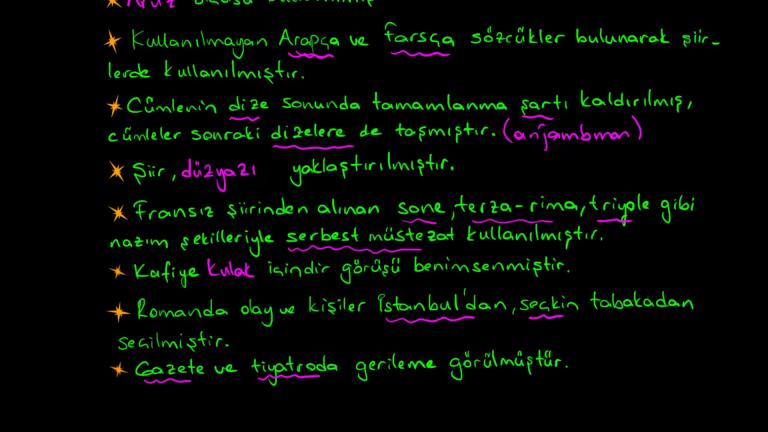 Kullanılmayan Arapça ve farsça sözcükler bulunarak şiir-
lerde kullanılmıştır.
Cümlenin dize sonunda tamamlanma şartı kaldırılmış,
cümleler sonraki dizelere de taşmıştır. (anjambman)
Şiir, düzyazı yaklaştırılmıştır.
Fransız şiirinden alınan sone, terza-rima, triyole gibi
nazım şekilleriyle serbest müstezat kullanılmıştır.
Kafiye kulak içindir görüşü benimsenmiştir.
Romanda olay ve kişiler İstanbul'dan, seçkin tabakadan
seçilmiştir.
Gazete ve tiyatroda gerileme görülmüştür.